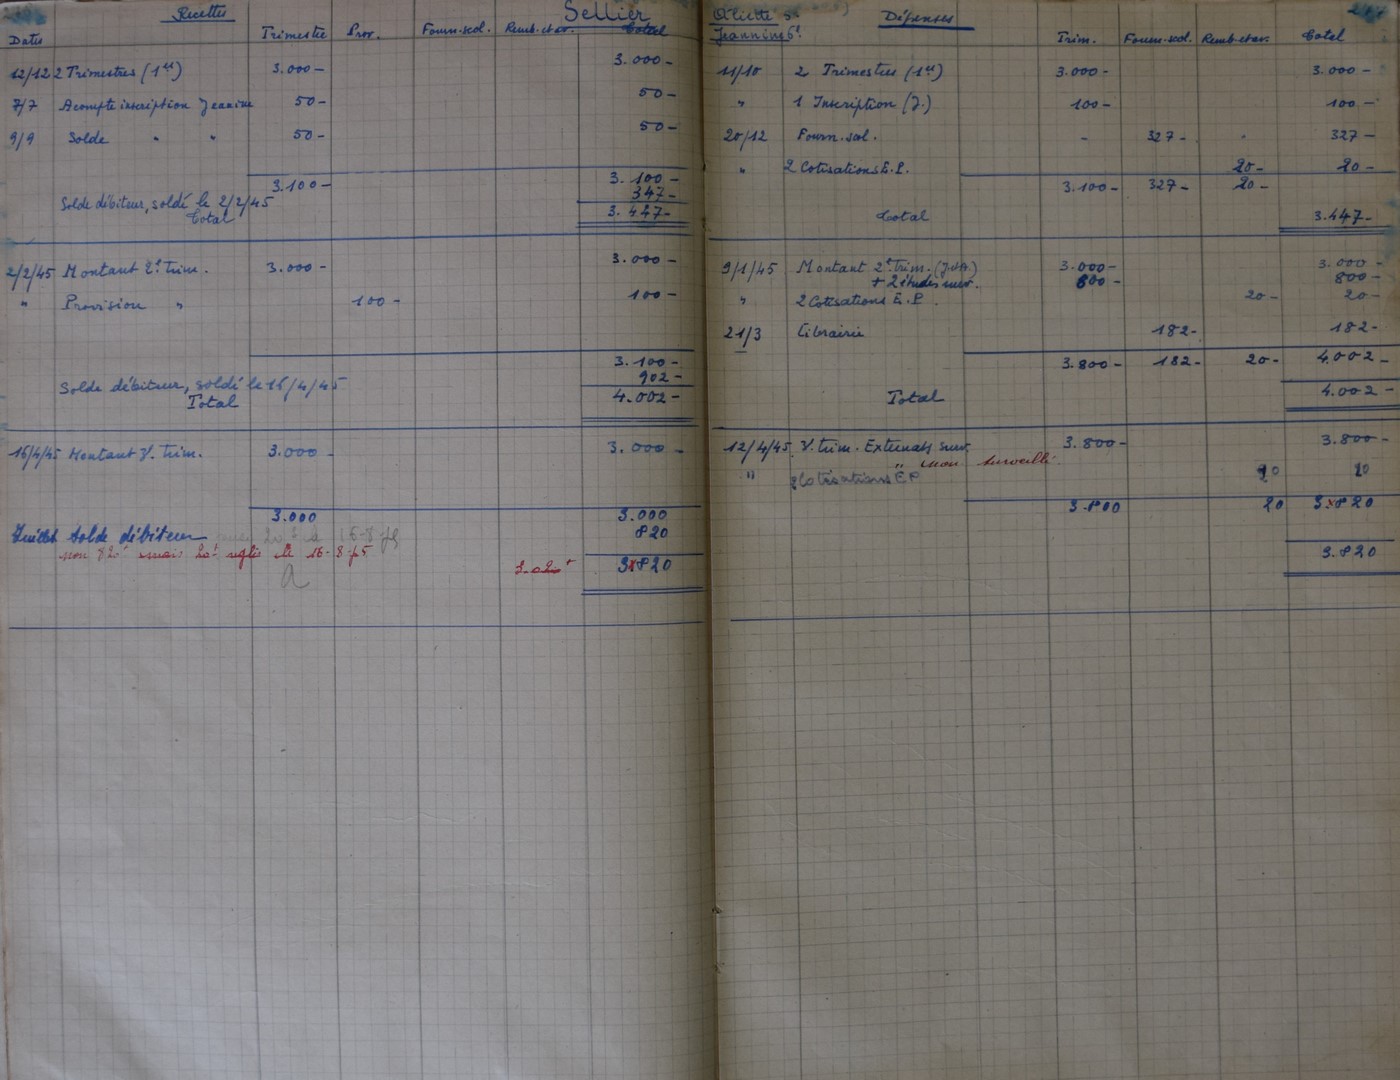 Recettes Sellier
Dates Trimestre Prov. Fourn-scol. Remb-et-av. Total
12/12 2 Trimestres (1er) 3.000- 3.000-
7/7 Acompte inscription Jeanine 50- 50-
9/9 Solde " " 50- 50-
3.100- 3.100-
Solde débiteur, soldé le 2/2/45 347-
Total 3.447-
2/2/45 Montant 2e Trim. 3.000- 3.000-
" Provision " 100- 100-
3.100-
Solde débiteur, soldé le 16/4/45 902-
Total 4.002-
16/4/45 Montant 3e trim. 3.000 3.000-
3.000 3.000
Juillet Solde débiteur 16-8-45 820
non 820 mais 20f réglé le 16-8-45
3.020 3.820
Dépenses
Jeannine 6e Trim. Fourn-scol. Remb-et-av. Total
11/10 2 Trimestres (1er) 3.000- 3.000-
" 1 Inscription (J.) 100- 100-
20/12 Fourn. scol. - 327- " 327-
" 2 Cotisations E.P. 20- 20-
3.100- 327- 20-
Total 3.447-
9/1/45 Montant 2e Trim. 3.000- 3.000-
+ 2 études surv. 800- 800-
" 2 Cotisations E.P. 20- 20-
21/3 Librairie 182- 182-
3.800- 182- 20- 4.002-
Total 4.002-
12/4/45 3e trim. Externats surv. 3.800- 3.800-
" non surveillé
" 2 Cotisations E.P 20 20
3.800 20 3.820
3.820